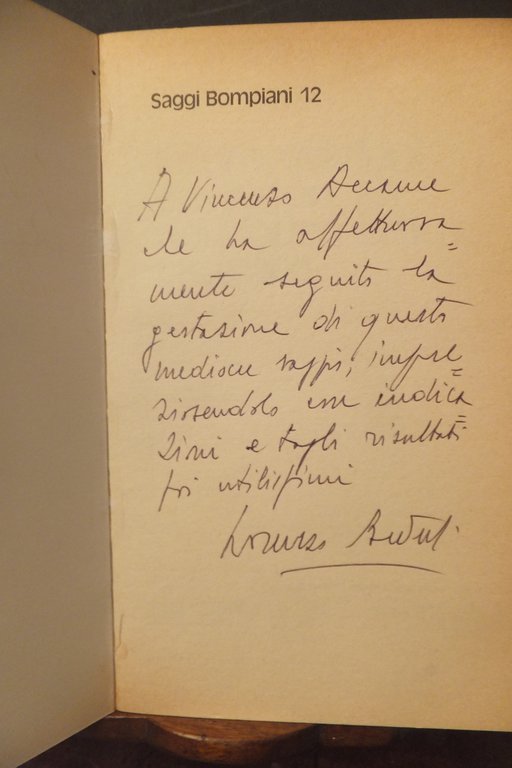 Saggi Bompiani 12
A Vincenzo
che ha affettuosa=
mente seguito la
gestazione di questo
mediocre saggio, impre=
ziosendolo con indica=
zioni e tagli risultati
poi utilissimi
Lorenzo